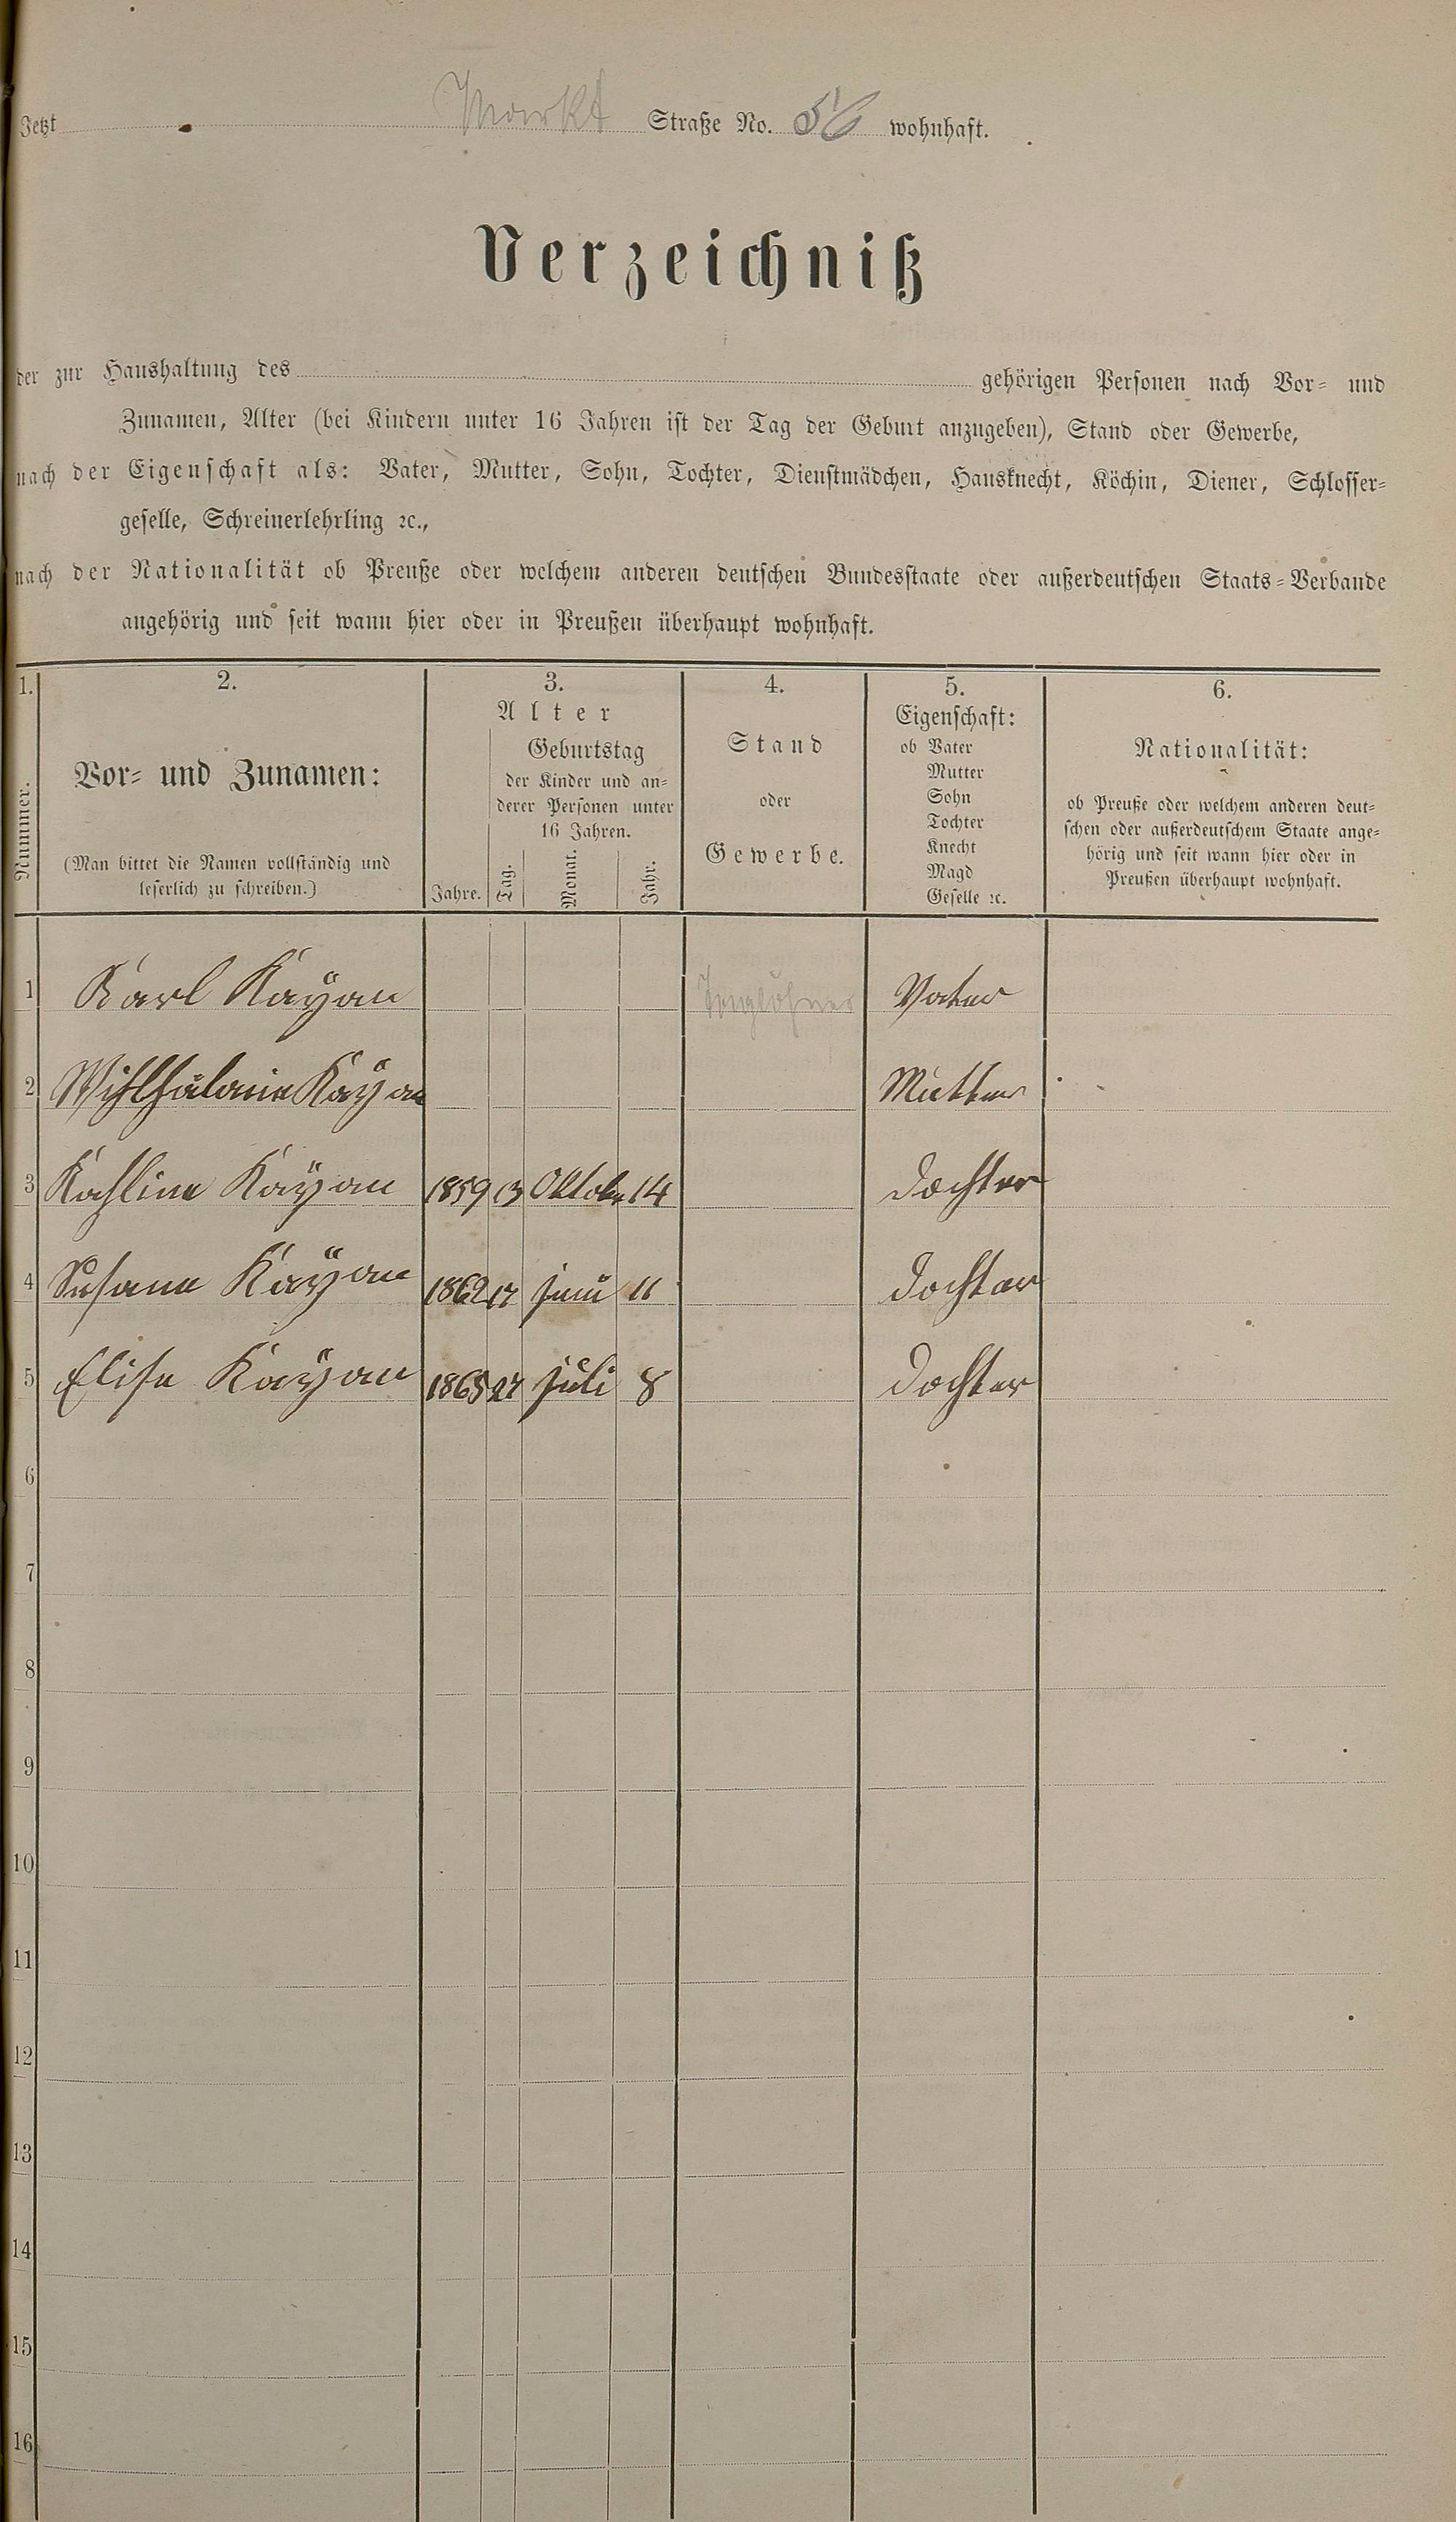 Jetzt Markt Straße No. 56 wohnhaft.
Verzeichniß
der zur Haushaltung des gehörigen Personen nach Vor- und
Zunamen, Alter (bei Kindern unter 16 Jahren ist der Tag der Geburt anzugeben), Stand oder Gewerbe,
nach der Eigenschaft als: Vater, Mutter, Sohn, Tochter, Dienstmädchen, Hausknecht, Köchin, Diener, Schlosser-
geselle, Schreinerlehrling ꝛc.,
nach der Nationalität ob Preuße oder welchem anderen deutschen Bundesstaate oder außerdeutschen Staats-Verbande
angehörig und seit wann hier oder in Preußen überhaupt wohnhaft.
1.
Nummer.
2.
Vor- und Zunamen:
(Man bittet die Namen vollständig und
leserlich zu schreiben.)
3.
Alter
Geburtstag
der Kinder und an-
derer Personen unter
16 Jahren.
Jahre. Tag. Monat. Jahr.
4.
Stand
oder
Gewerbe.
5.
Eigenschaft:
ob Vater
Mutter
Sohn
Tochter
Knecht
Magd
Geselle ꝛc.
6.
Nationalität:
ob Preuße oder welchem anderen deut-
schen oder außerdeutschem Staate ange-
hörig und seit wann hier oder in
Preußen überhaupt wohnhaft.
1 Karl Kaÿan Taglöhner Vater
2 Kaÿan Mutter
3 Kahline Kaÿan 1859 13 Oktober 14 Dochter
4 Susana Kaÿan 1862 17 Juni 11 Dochter
5 Elise Kaÿan 1865 27 Juli 8 Dochter
6
7
8
9
10
11
12
13
14
15
16